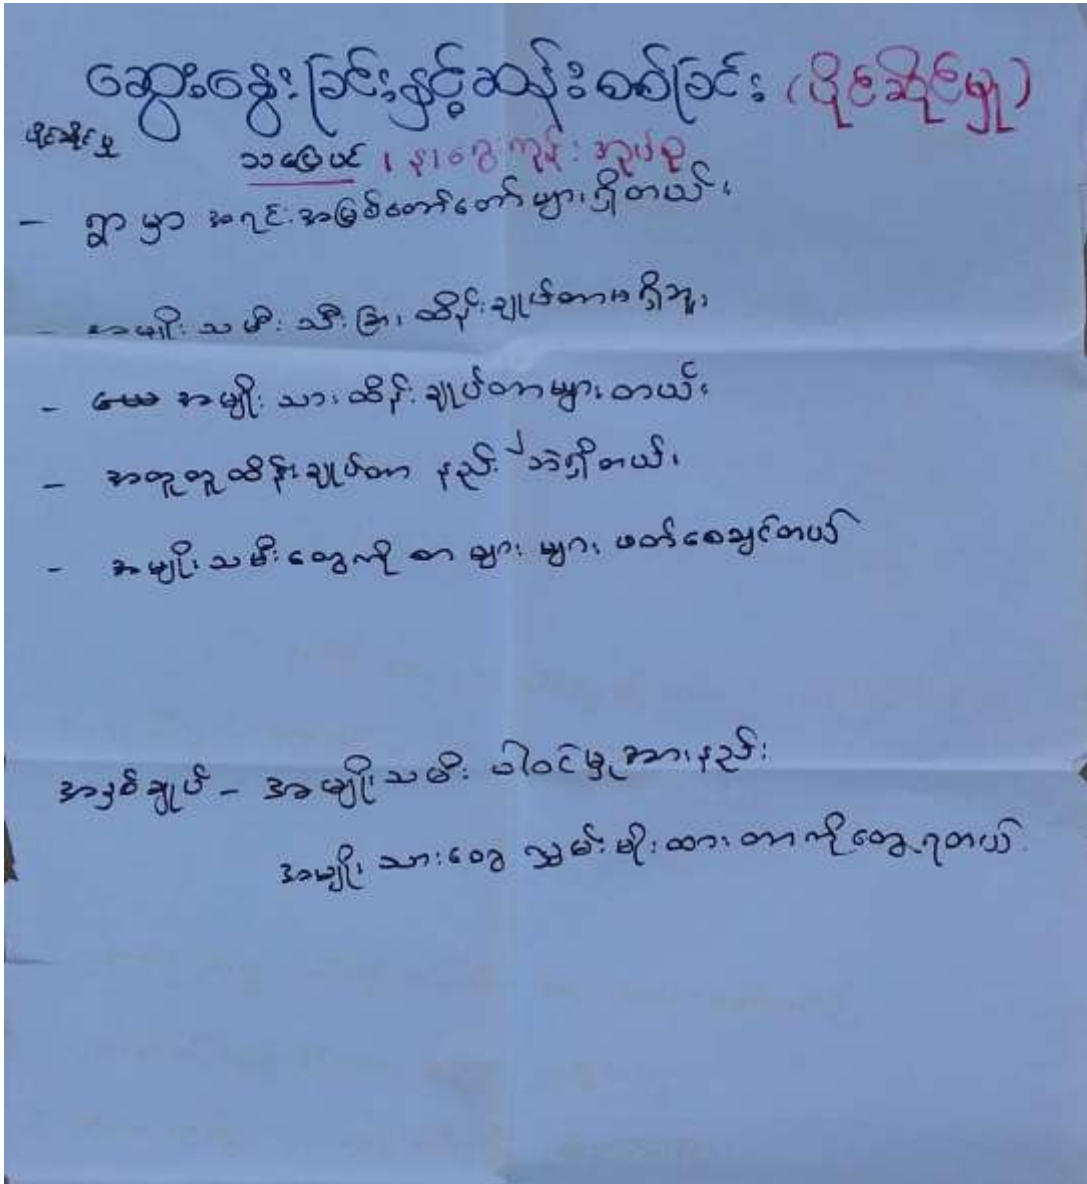 ဆွေးနွေးခြင်းနှင့်ဆန်းစစ်ခြင်း (ပိုင်ဆိုင်မှု)
ပိုင်ဆိုင်မှု
သပြေပင် ၊ နွားခွေးကုန်း အုပ်စု
- ရွာမှာ အရင်းအမြစ်တော်တော်များရှိတယ်။
- အမျိုးသမီး သီးခြား ထိန်းချုပ်တာမရှိဘူး၊
- အမျိုးသားထိန်းချုပ်တာများတယ်။
- အတူတူထိန်းချုပ်တာ နည်းနည်းဘဲရှိတယ်၊
- အမျိုးသမီးတွေကို စာများများ ဖတ်စေချင်တယ်
အနှစ်ချုပ် - အမျိုးသမီး ပါဝင်မှုအားနည်း
အမျိုးသားတွေ လွှမ်းမိုးထားတာကိုတွေ့ရတယ်